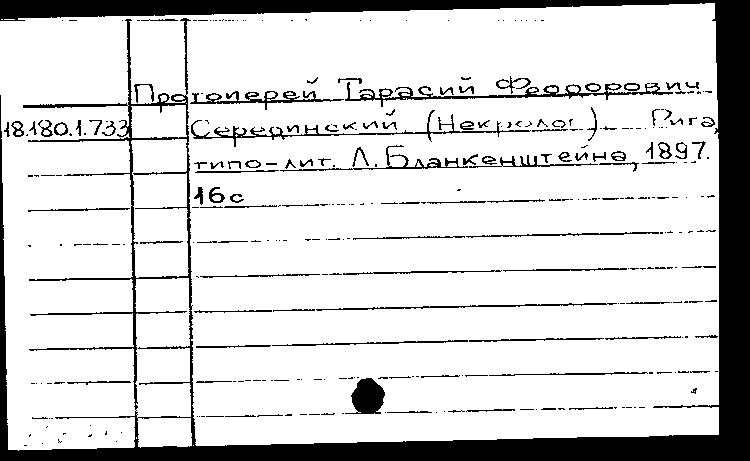 Протоиерей Тарасий Феодорович
18.180.1.733 Серединский (Некролог). Рига,
типо-лит. Л. Бланкенштейна, 1897.
16с